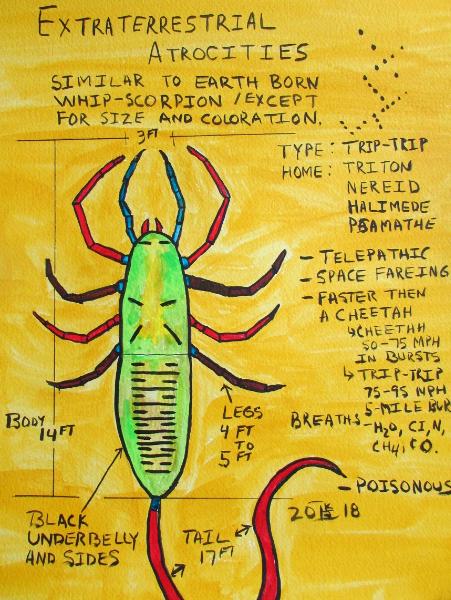 EXTRATERRESTRIAL
ATROCITIES
SIMILAR TO EARTH BORN
WHIP-SCORPION / EXCEPT
FOR SIZE AND COLORATION.
3 FT
TYPE: TRIP-TRIP
HOME: TRITON
NEREID
HALIMEDE
PSAMATHE
- TELEPATHIC
- SPACE FAREING
- FASTER THEN
A CHEETAH
↳ CHEETAH
50-75 MPH
IN BURSTS
↳ TRIP-TRIP
75-95 MPH
5-MILE BUR
BREATHS
- H2O, CI, N,
CH4, CO.
BODY 14 FT
LEGS
4 FT
TO
5 FT
- POISONOUS
BLACK
UNDERBELLY
AND SIDES
TAIL
17 FT
20 18